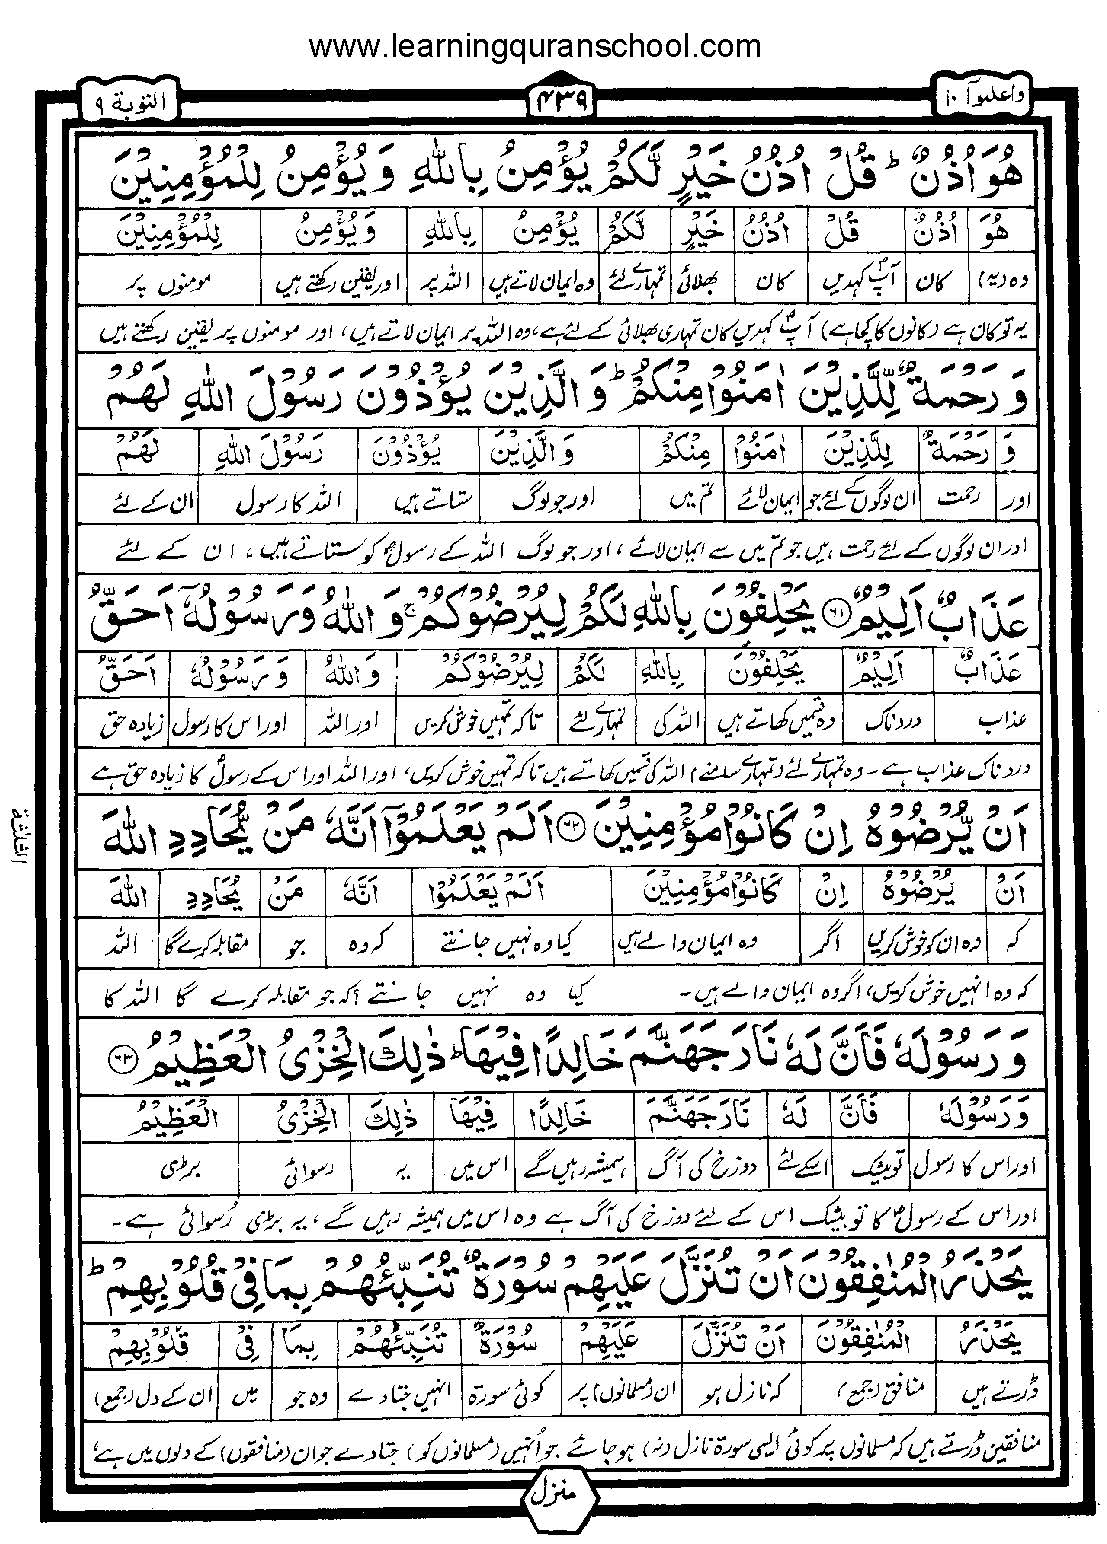 www.learningquranschool.com
واعلموآ ۱۰
۴۳۹
التوبة ۹
هُوَ اُذُنٌ ؕ قُلْ اُذُنُ خَيْرٍ لَّكُمْ يُؤْمِنُ بِاللّٰهِ وَ يُؤْمِنُ لِلْمُؤْمِنِيْنَ
هُوَ اُذُنٌ قُلْ اُذُنُ خَيْرٍ لَّكُمْ يُؤْمِنُ بِاللّٰهِ وَ يُؤْمِنُ لِلْمُؤْمِنِيْنَ
وہ (یہ) کان آپؐ کہدیں کان بھلائی تمہارے لئے وہ ایمان لاتے ہیں اللہ پر اور یقین رکھتے ہیں مومنوں پر
یہ تو کان ہے (کانوں کا کچا ہے) آپؐ کہدیں کان تمہاری بھلائی کے لئے ہے، وہ اللہ پر ایمان لاتے ہیں، اور مومنوں پر یقین رکھتے ہیں
وَ رَحْمَةٌ لِّلَّذِيْنَ اٰمَنُوْا مِنْكُمْ ؕ وَ الَّذِيْنَ يُؤْذُوْنَ رَسُوْلَ اللّٰهِ لَهُمْ
وَ رَحْمَةٌ لِلَّذِيْنَ اٰمَنُوْا مِنْكُمْ وَ الَّذِيْنَ يُؤْذُوْنَ رَسُوْلَ اللّٰهِ لَهُمْ
اور رحمت ان لوگوں کے لئے جو ایمان لائے تم میں اور جو لوگ ستاتے ہیں اللہ کا رسول ان کے لئے
اور ان لوگوں کے لئے رحمت ہیں جو تم میں سے ایمان لائے، اور جو لوگ اللہ کے رسولؐ کو ستاتے ہیں، ان کے لئے
عَذَابٌ اَلِيْمٌ ﴿۶۱﴾ يَحْلِفُوْنَ بِاللّٰهِ لَكُمْ لِيُرْضُوْكُمْ ۚ وَ اللّٰهُ وَ رَسُوْلُهٗٓ اَحَقُّ
عَذَابٌ اَلِيْمٌ يَحْلِفُوْنَ بِاللّٰهِ لَكُمْ لِيُرْضُوْكُمْ وَ اللّٰهُ وَ رَسُوْلُهٗٓ اَحَقُّ
عذاب دردناک وہ قسمیں کھاتے ہیں اللہ کی تمہارے لئے تاکہ تمہیں خوش کریں اور اللہ اور اس کا رسول زیادہ حق
دردناک عذاب ہے۔ وہ تمہارے لئے (تمہارے سامنے) اللہ کی قسمیں کھاتے ہیں تاکہ تمہیں خوش کریں، اور اللہ اور اس کے رسولؐ کا زیادہ حق ہے
اَنْ يُّرْضُوْهُ اِنْ كَانُوْا مُؤْمِنِيْنَ ﴿۶۲﴾ اَلَمْ يَعْلَمُوْٓا اَنَّهٗ مَنْ يُّحَادِدِ اللّٰهَ
اَنْ يُرْضُوْهُ اِنْ كَانُوْا مُؤْمِنِيْنَ اَلَمْ يَعْلَمُوْا اَنَّهٗ مَنْ يُحَادِدِ اللّٰهَ
کہ وہ ان کو خوش کریں اگر وہ ایمان والے ہیں کیا وہ نہیں جانتے کہ وہ جو مقابلہ کرے گا اللہ
کہ وہ انہیں خوش کریں، اگر وہ ایمان والے ہیں۔ کیا وہ نہیں جانتے کہ جو مقابلہ کرے گا اللہ کا
وَ رَسُوْلَهٗ فَاَنَّ لَهٗ نَارَ جَهَنَّمَ خَالِدًا فِيْهَا ؕ ذٰلِكَ الْخِزْىُ الْعَظِيْمُ ﴿۶۳﴾
وَ رَسُوْلَهٗ فَاَنَّ لَهٗ نَارَ جَهَنَّمَ خَالِدًا فِيْهَا ذٰلِكَ الْخِزْىُ الْعَظِيْمُ
اور اس کا رسول تو بیشک اسکے لئے دوزخ کی آگ ہمیشہ رہیں گے اس میں یہ رسوائی بڑی
اور اس کے رسولؐ کا تو بیشک اس کے لئے دوزخ کی آگ ہے وہ اس میں ہمیشہ رہیں گے، یہ بڑی رُسوائی ہے۔
يَحْذَرُ الْمُنٰفِقُوْنَ اَنْ تُنَزَّلَ عَلَيْهِمْ سُوْرَةٌ تُنَبِّئُهُمْ بِمَا فِيْ قُلُوْبِهِمْ ؕ
يَحْذَرُ الْمُنٰفِقُوْنَ اَنْ تُنَزَّلَ عَلَيْهِمْ سُوْرَةٌ تُنَبِّئُهُمْ بِمَا فِيْ قُلُوْبِهِمْ
ڈرتے ہیں منافق (جمع) کہ نازل ہو ان (مسلمانوں) پر کوئی سورۃ انہیں جتا دے وہ جو میں ان کے دل (جمع)
منافقین ڈرتے ہیں کہ مسلمانوں پر کوئی ایسی سورۃ نازل (نہ) ہو جائے جو اُنہیں (مسلمانوں کو) جتا دے جو ان (منافقوں) کے دلوں میں ہے،
منزل
الثلثة